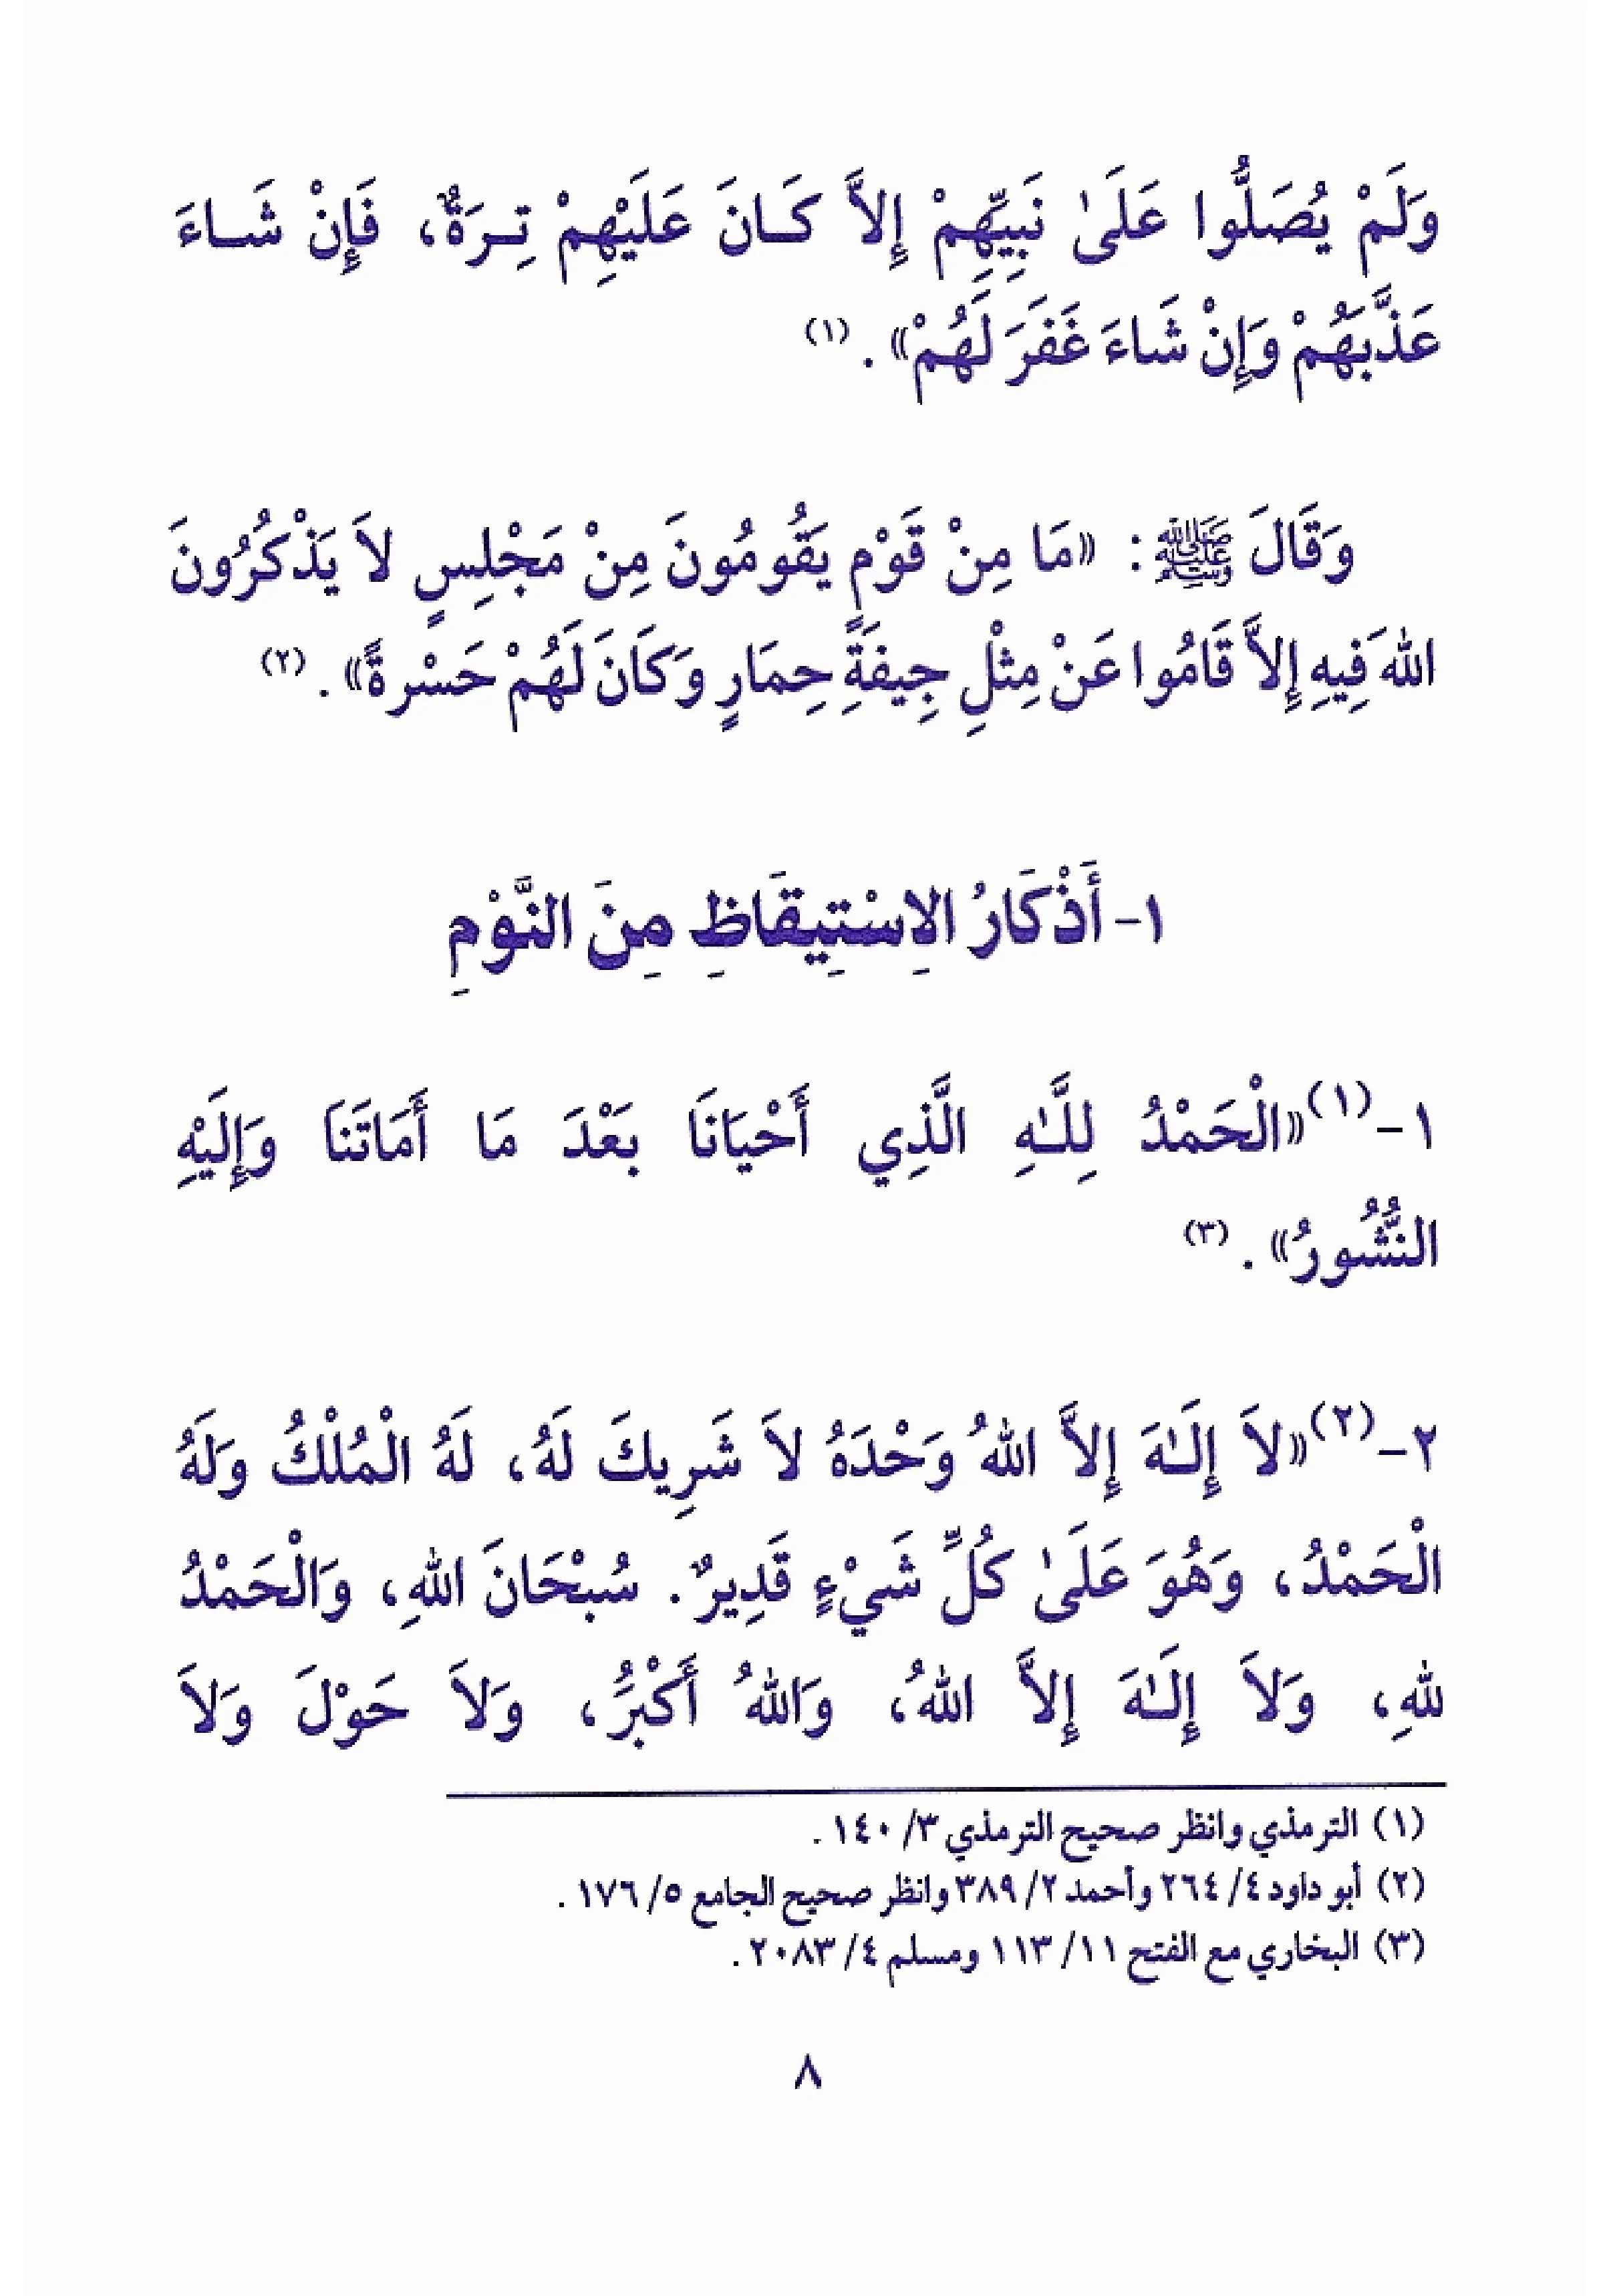 وَلَمْ يُصَلُّوا عَلَىٰ نَبِيِّهِمْ إِلاَّ كَـانَ عَلَيْهِمْ تِـرَةٌ، فَإِنْ شَـاءَ
عَذَّبَهُمْ وَإِنْ شَاءَ غَفَرَ لَهُمْ» . (١)
وَقَالَ ﷺ : «مَا مِنْ قَوْمٍ يَقُومُونَ مِنْ مَجْلِسٍ لاَ يَذْكُرُونَ
اللهَ فِيهِ إِلاَّ قَامُوا عَنْ مِثْلِ جِيفَةِ حِمَارٍ وَكَانَ لَهُمْ حَسْرةً» . (٢)
١- أَذْكَارُ الاِسْتِيقَاظِ مِنَ النَّوْمِ
١-(١) «الْحَمْدُ لِلَّـٰهِ الَّذِي أَحْيَانَا بَعْدَ مَا أَمَاتَنَا وَإِلَيْهِ
النُّشُورُ» . (٣)
٢-(٢) «لاَ إِلَـٰهَ إِلاَّ اللهُ وَحْدَهُ لاَ شَرِيكَ لَهُ، لَهُ الْمُلْكُ وَلَهُ
الْحَمْدُ، وَهُوَ عَلَىٰ كُلِّ شَيْءٍ قَدِيرٌ. سُبْحَانَ اللهِ، وَالْحَمْدُ
للهِ، وَلاَ إِلَـٰهَ إِلاَّ اللهُ، وَاللهُ أَكْبَرُ، وَلاَ حَوْلَ وَلاَ
(١) الترمذي وانظر صحيح الترمذي ٣/ ١٤٠ .
(٢) أبو داود ٤/ ٢٦٤ وأحمد ٢/ ٣٨٩ وانظر صحيح الجامع ٥/ ١٧٦ .
(٣) البخاري مع الفتح ١١/ ١١٣ ومسلم ٤/ ٢٠٨٣ .
٨